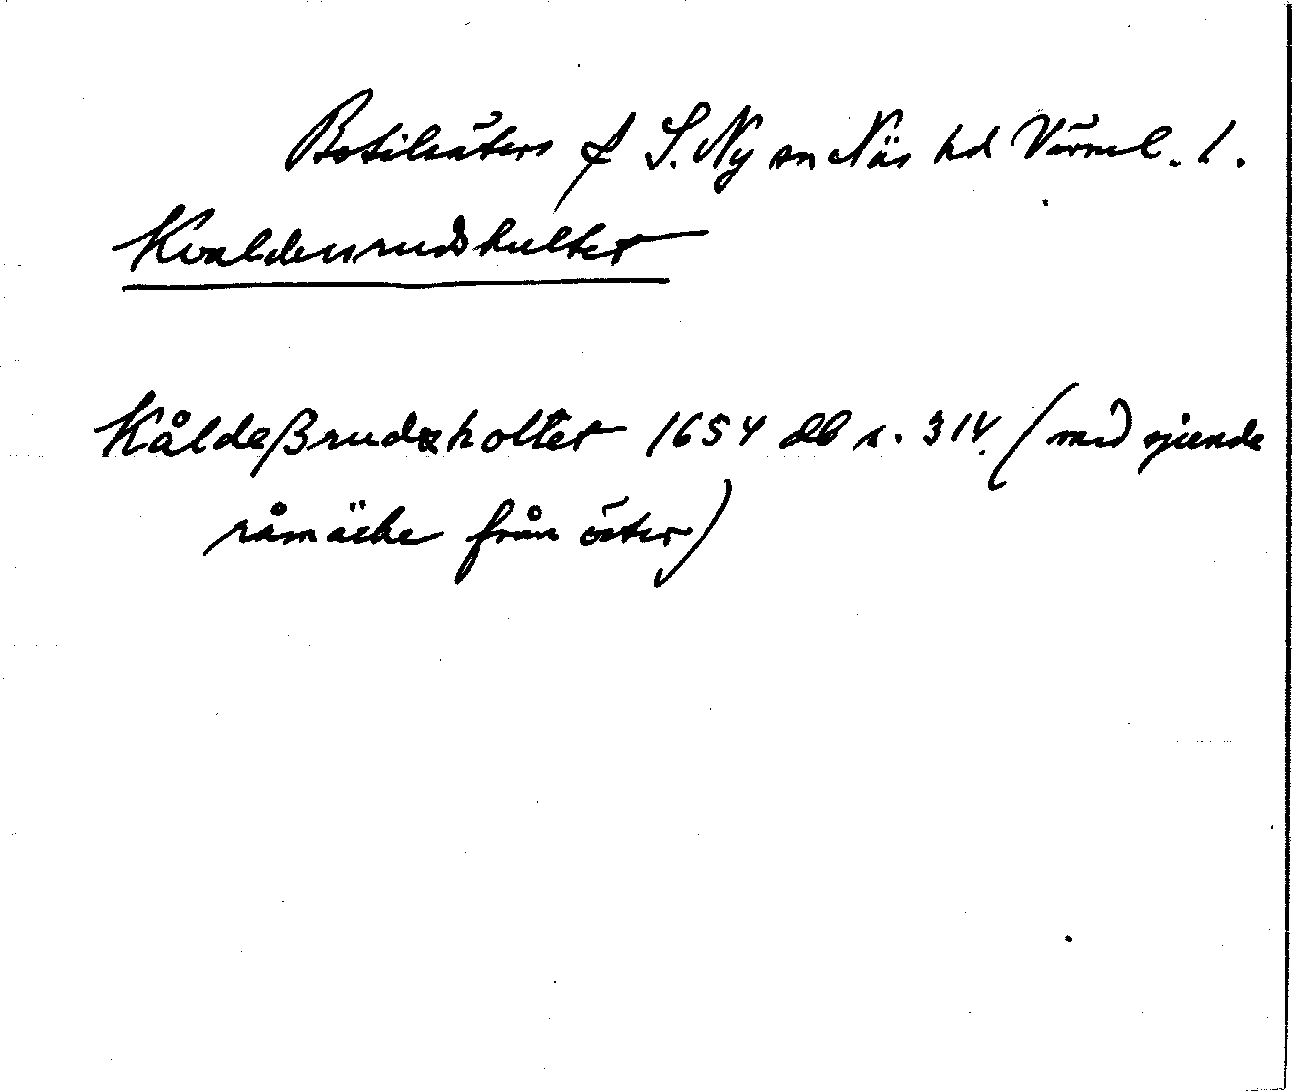 Botilsäters f S. Ny sn Näs hd Värml. l.
Kvaldenrudshultet
Kåldeßrudzholtet 1654 db s. 314 (med sjunde
råmäche från öster)